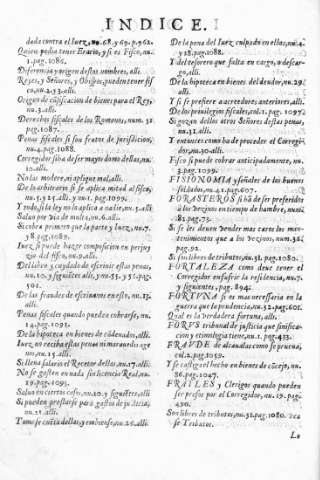 INDICE.
dada contra el Iuez, nu. 68. y 69. p. 962.
Quien podia tener Erario, y si es Fisco, nu.
1. pag. 1086.
Diferencia y origen destos nombres, alli.
Reyes, y Señores, y Obispos, pueden tener fis
co, nu. 2. 33. alli.
Origen de cõfiscacion de bienes para el Rey,
nu. 3. alli.
Derechos fiscales de los Romanos, num. 31
pag. 1087.
Penas fiscales si son frutos de jurisdicion,
nu. 4. pag. 1088.
Corregidor si ha de ser mayordomo dellas, nu.
10. alli.
No las modere, ni aplique mal, alli.
De lo arbitrario si se aplica mitad al fisco,
nu. 5. y 25. alli, y nu. 1. pag. 1099.
Y todo, si la ley no lo aplica a nadie, nu. 5. alli.
Salon por via de multa, nu. 6. alli.
Si cobra primero que la parte y Iuez, nu. 7.
y 8. pag. 1089.
Iuez si puede hazer composicion en perjuy
zio del fisco, nu. 9. alli.
Del libro y cuydado de escriuir estas penas,
nu. 10. y siguiẽtes alli, y nu. 55. y 56. pag.
101.
De los fraudes de escriuanos en esto, nu. 13.
alli.
Penas fiscales quando pueden cobrarse, nu.
14. pag. 1091.
De la hipoteca en bienes de cõdenados, alli.
Iuez no reciba estas penas ni marauedis nu.
16. alli.
Si llena salario el Recetor dellas, nu. 17. alli.
No se gasten en nada sin licencia Real, nu.
19. pag. 1093.
Saluo en ciertos casos, nu. 20. y siguiẽtes, alli
Si pueden prestarse por gastos de justicia,
nu. 21. alli.
Tome se cuẽta dellas, y embiese, nu. 26. alli.
De la pena del Iuez culpado en ellas, nu. 4.
y 28. pag. 1088.
Y del tesorero que falta en cargo, o descar-
go, alli.
De la hipoteca en bienes del deudor, nu. 29
alli.
Y si se prefiere a acreedores anteriores, alli.
De los priuilegios fiscales, cul. 2. pag. 1097
Si gozan dellos otros Señores destas penas,
nu. 31. alli.
Y entonces como ha de proceder el Corregi-
dor, nu. 30. alli.
Fisco si puede cobrar anticipadamente, nu.
3. pag. 1099.
FISIONOMIA y señales de los buenos
soldados, nu. 41. pag. 607.
FORASTEROS si ha de ser preferidos
a los vezinos en tiempo de hambre, num.
81. pag. 73.
Si se les deuen vender mas caros los man-
tenimientos que a los vezinos, num. 32.
pag. 92.
Si son libres de tributos, nu. 31. pag. 1080.
FORTALEZA como deue tener el
Corregidor en sufrir la residencia, nu. 7.
y siguientes, pag. 894.
FORTVNA si es mas necessaria en la
guerra que la prudencia, nu. 32. pag. 601.
Qual es la verdadera fortuna, alli.
FORVS tribunal de justicia que sinifica-
cion y etimologia tiene, nu. 1. pag. 433.
FRAVDE de alcaualas como se prueua,
cul. 2. pag. 1059.
Y se castiga el hecho en bienes de cõcejo, nu.
86. pag. 1047.
FRAYLES y Clerigos quando pueden
ser presos por el Corregidor, nu. 19. pag.
490.
Son libres de tributos, nu. 31. pag. 1080. vea
se Tributos.
La